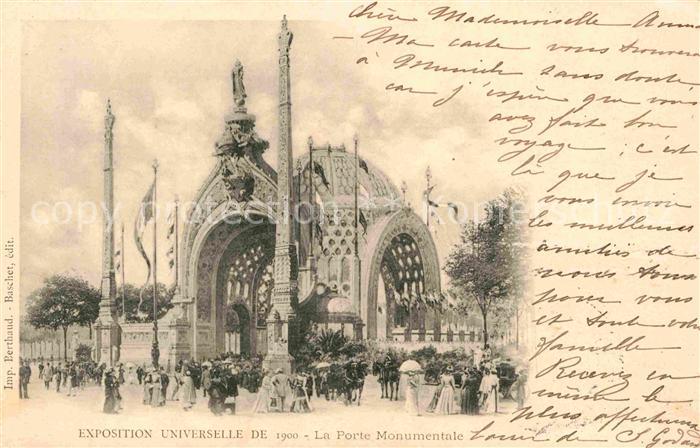 chère Mademoiselle Anna
Ma carte vous trouvera
à Munich sans doute
car j'espère que vous
avez fait bon
voyage; c'est
là que je
vous envoie
les meilleures
amitiés de
nous tous
pour vous
et toute votre
famille
Recevez en
même le
plus affectueux
de
EXPOSITION UNIVERSELLE DE 1900 - La Porte Monumentale
Imp. Berthaud. - Baschet, édit.
copyright
copyright
copyright